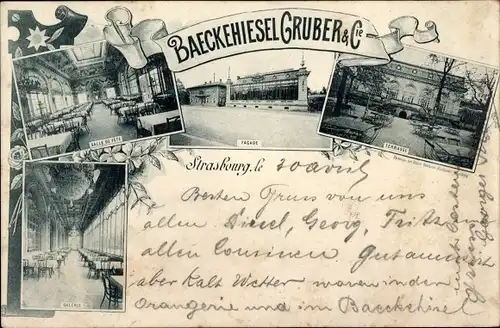 BAECKEHIESEL GRUBER & Cie
SALLE DE FÊTE
FAÇADE
TERRASSE
GALERIE
Strasbourg, le 20 avril
Besten Gruss von uns
allen Diesel, Georg, Fritz
allen Cousinen Gut
aber Kalt Wetter waren in der
Orangerie und im Baeckehisel
Georges